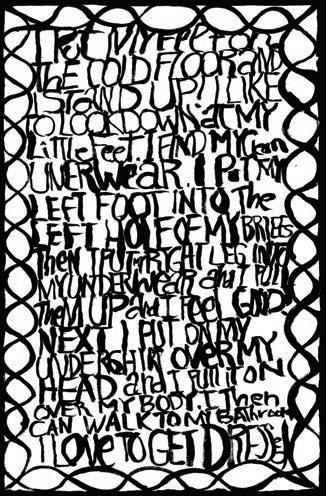 I PUT MY FEET ON
THE COLD FLOOR and
I STAND UP! I LIKE
TO LOOK DOWN at MY
Little Feet. I FIND MY clean
UNERWEAR. I PUT MY
LEFT FOOT INTO The
LEFT HOLE OF MY BRIEFS
Then I PUT MY RIGHT LEG INTO
MY UNDERWEAR and I PUll
theM UP and I FEEL GOOD.
NEXT I PUT ON MY
UNDERSHIRT OVER MY
HEAD and I PUll IT ON
OVER MY BODY! I Then
CAN WALK TO MY BAThroom
I LOVE TO GET DRESSED